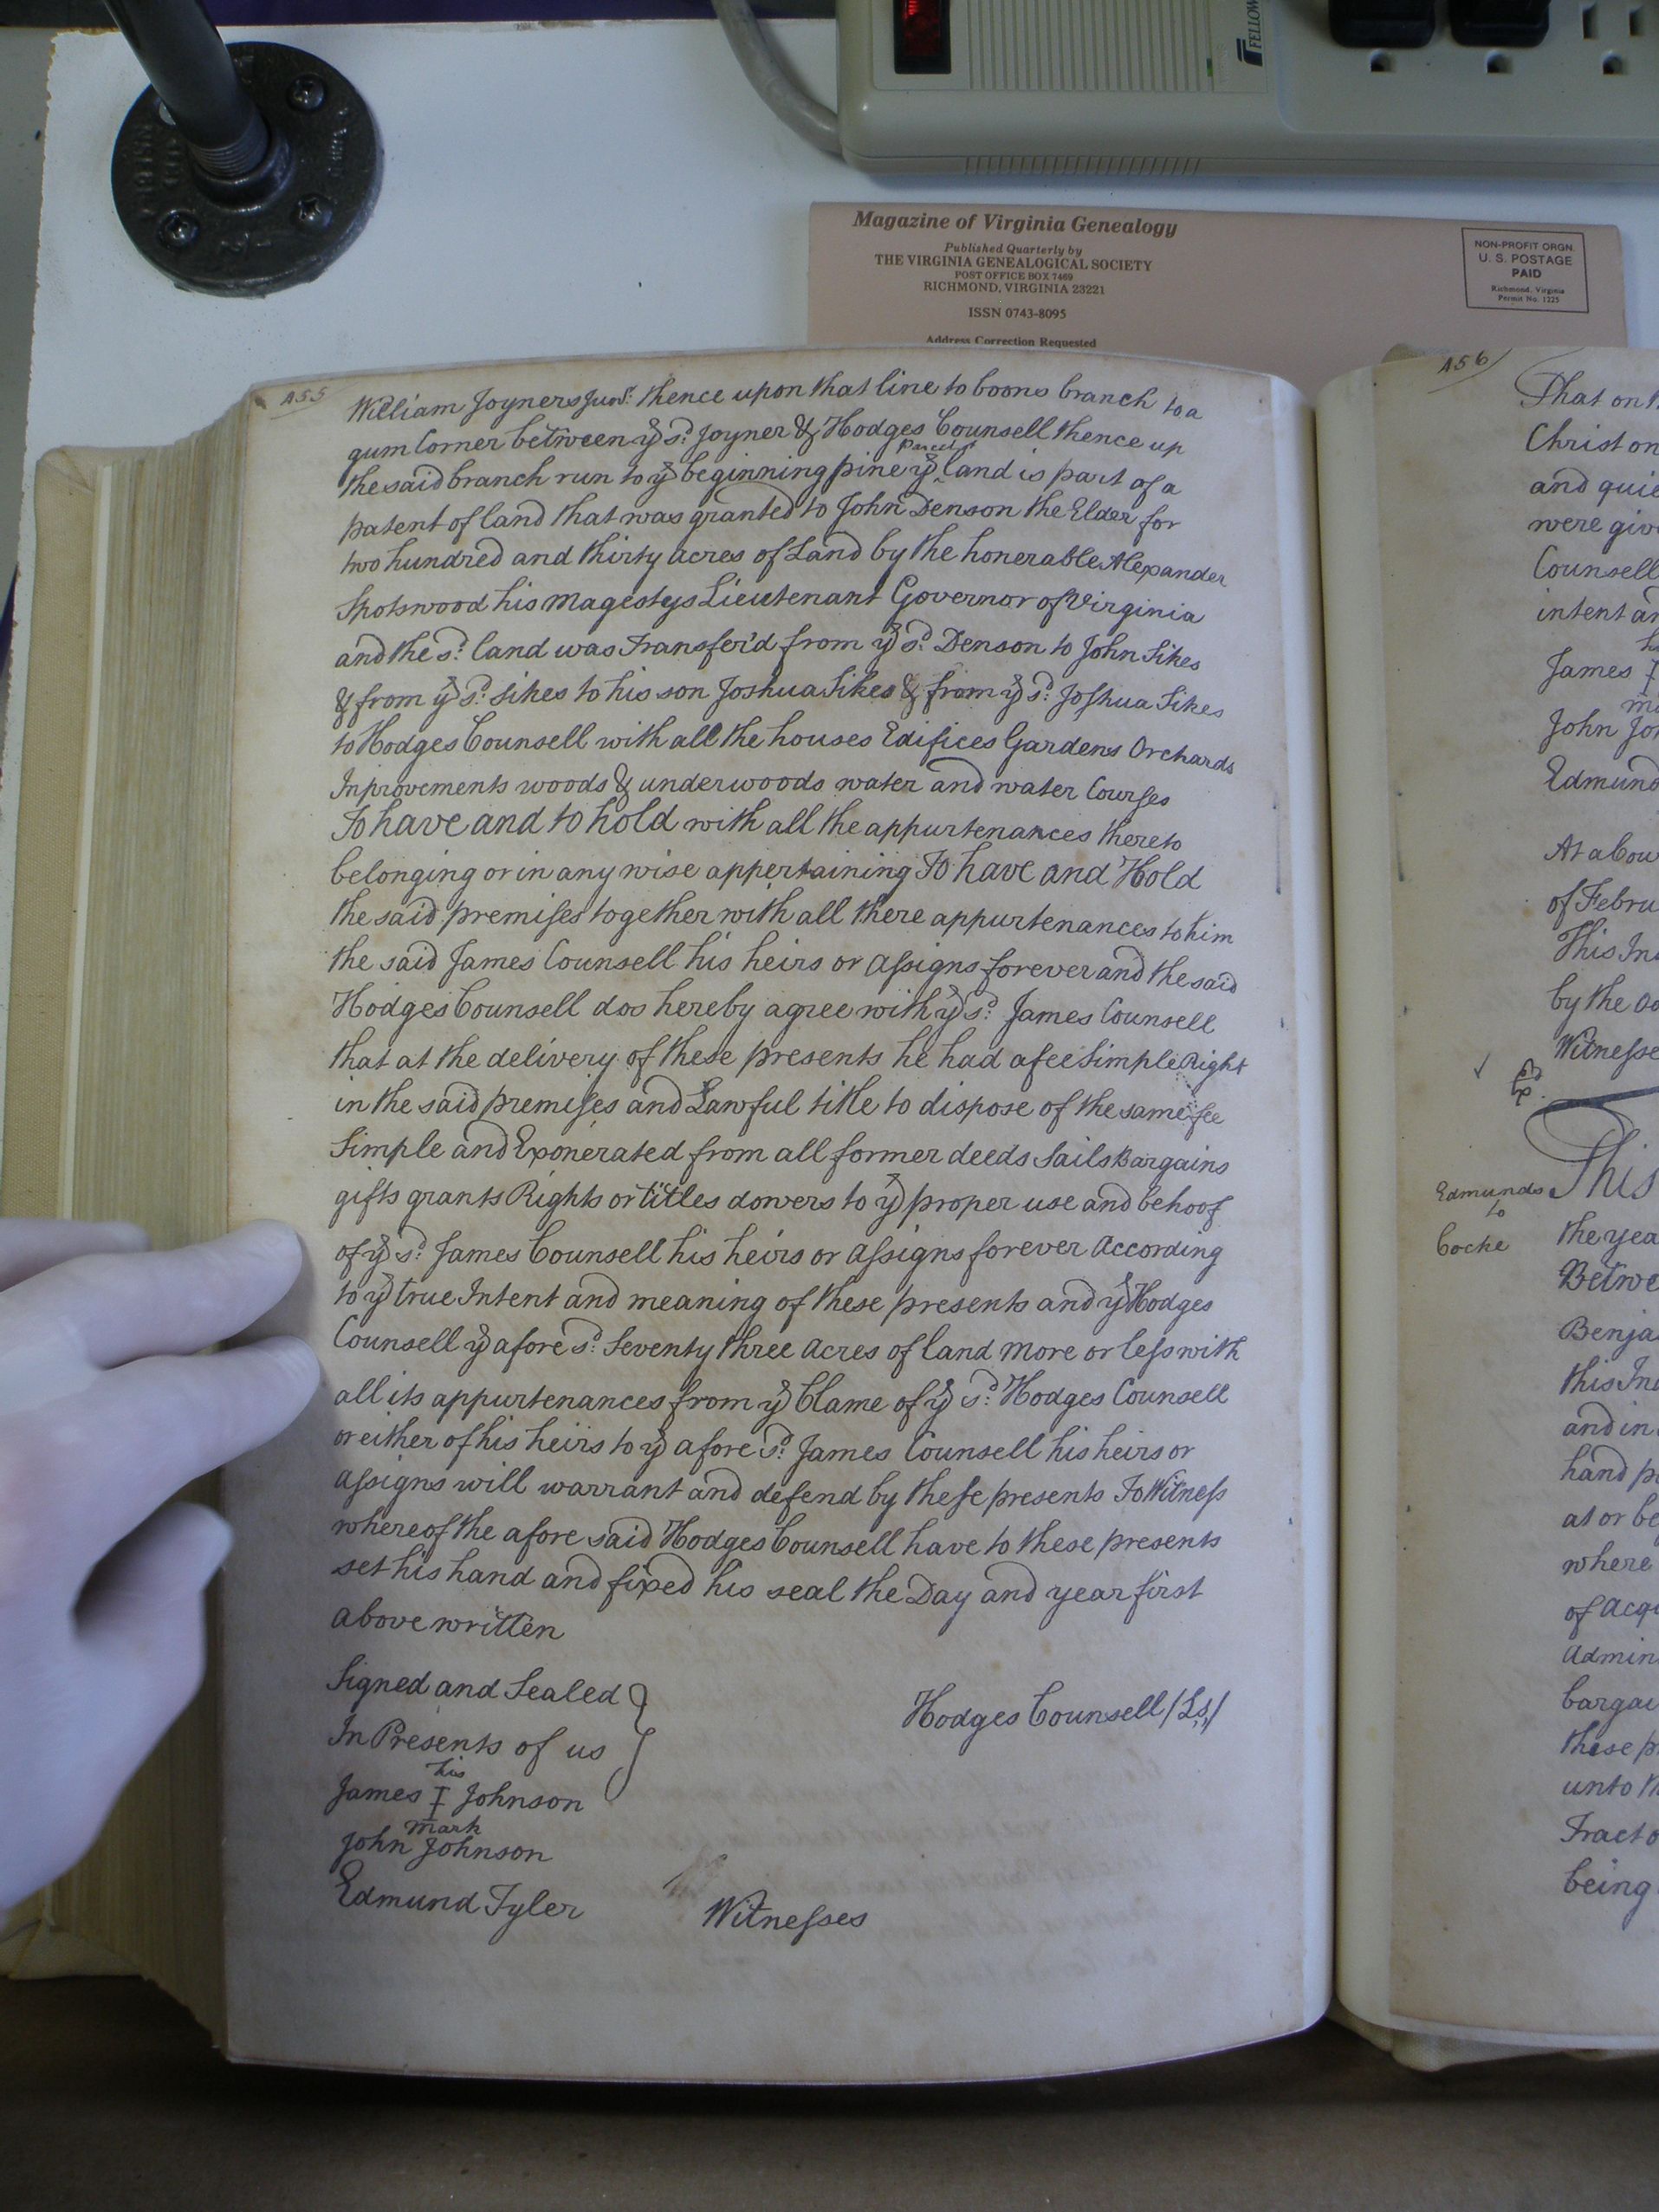 FELLOW
Magazine of Virginia Genealogy
Published Quarterly by
THE VIRGINIA GENEALOGICAL SOCIETY
POST OFFICE BOX 7469
RICHMOND, VIRGINIA 23221
ISSN 0743-8095
Address Correction Requested
NON-PROFIT ORGN.
U. S. POSTAGE
PAID
Richmond, Virginia
Permit No. 1225
455
William Joyners Junr. thence upon that line to boons branch to a
gum Corner between ye sd. Joyner & Hodges Counsell thence up
parcel of
the said branch run to ye beginning pine ye land is part of a
patent of land that was granted to John Denson the Elder for
two hundred and thirty acres of Land by the honerable Alexander
Spotswood his Magestys Lieutenant Governor of Virginia
and the sd. land was transfer'd from ye sd. Denson to John Sikes
& from ye sd. Sikes to his son Joshua Sikes & from ye sd. Joshua Sikes
to Hodges Counsell with all the houses Edifices Gardens Orchards
Inprovements woods & underwoods water and water Courses
To have and to hold with all the appurtenances thereto
belonging or in any wise appertaining To have and Hold
the said premises together with all there appurtenances to him
the said James Counsell his heirs or assigns forever and the said
Hodges Counsell dos hereby agree with ye sd. James Counsell
that at the delivery of these presents he had a fee Simple Right
in the said premises and Lawful title to dispose of the same fee
Simple and Exonerated from all former deeds Sails Bargains
gifts grants Rights or titles dowers to ye proper use and behoof
of ye sd. James Counsell his heirs or assigns forever According
to ye true Intent and meaning of these presents and ye Hodges
Counsell ye afore sd. Seventy three Acres of land more or less with
all its appurtenances from ye Clame of ye sd. Hodges Counsell
or either of his heirs to ye afore sd. James Counsell his heirs or
assigns will warrant and defend by these presents To Witness
whereof the afore said Hodges Counsell have to these presents
set his hand and fixed his seal the Day and year first
above written
Signed and Sealed
In Presents of us
Hodges Counsell (Ls.)
his
James I Johnson
mark
John Johnson
Edmund Tyler
Witnesses
456
That on
Christ on
and quie
were giv
Counsell
intent an
James I
John Jo
Edmund
At a Cou
of Febru
This In
by the
Witnesse
This
Edmunds
to
Cocke
the yea
Betwe
Benja
this In
and in
hand p
at or be
where
of Acq
Admin
bargai
these p
unto th
Tract o
being